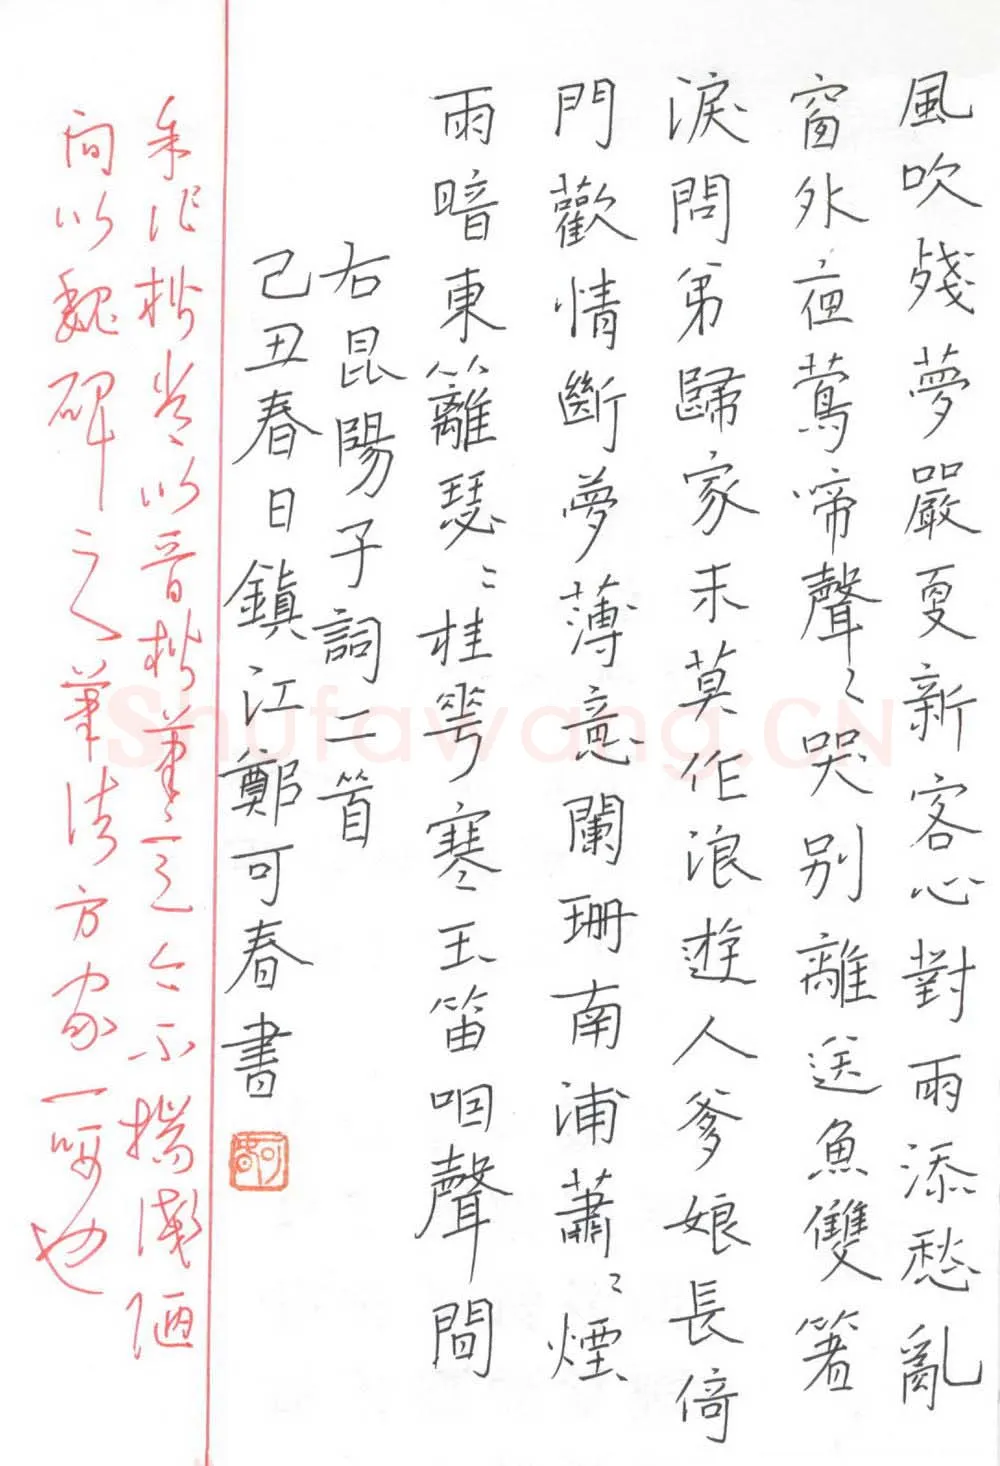 風吹殘夢嚴更新客心對雨添愁亂
窗外夜鶯啼聲〻哭別離送魚雙箸
淚問弟歸家未莫作浪遊人爹娘長倚
門歡情斷夢薄意闌珊南浦蕭〻煙
雨暗東籬瑟〻桂花寒玉笛咽聲間
右昆陽子詞二首
己丑春日鎮江鄭可春書
作楷常以晉楷筆意今不揣淺陋
向以魏碑之筆法方家一哂也
Shufawang.CN